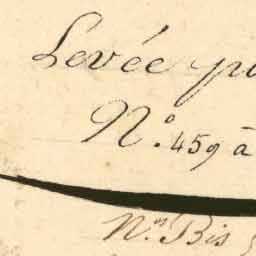 Levée pa
N.º 459 à
N.os Bis